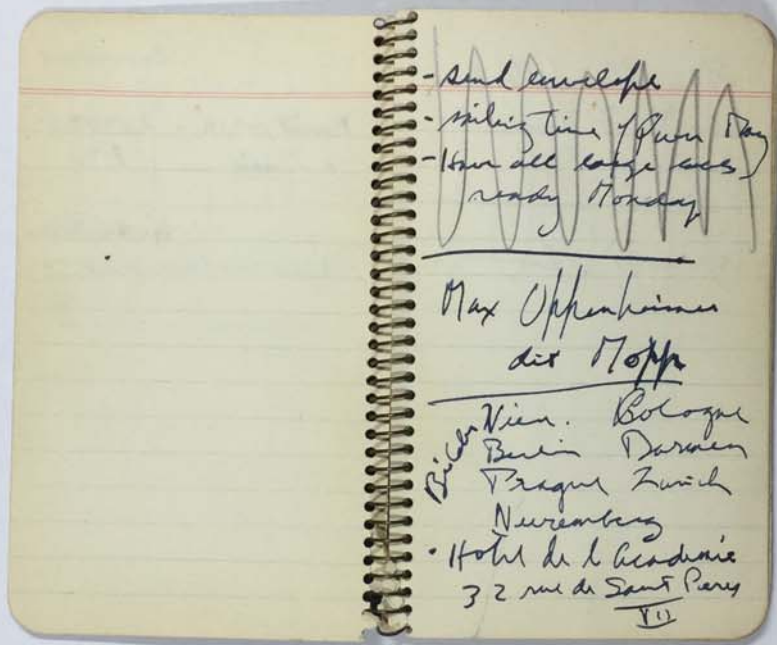 - send envelope
- sailing time / Queen May
- Have all large
ready Monday
Max Oppenheimer
dit Mopp
Bilder
Vien. Bologne
Berlin Barmen
Prague Zurich
Nuremberg
• Hotel de l Academie
32 rue de Saint Peres
VII